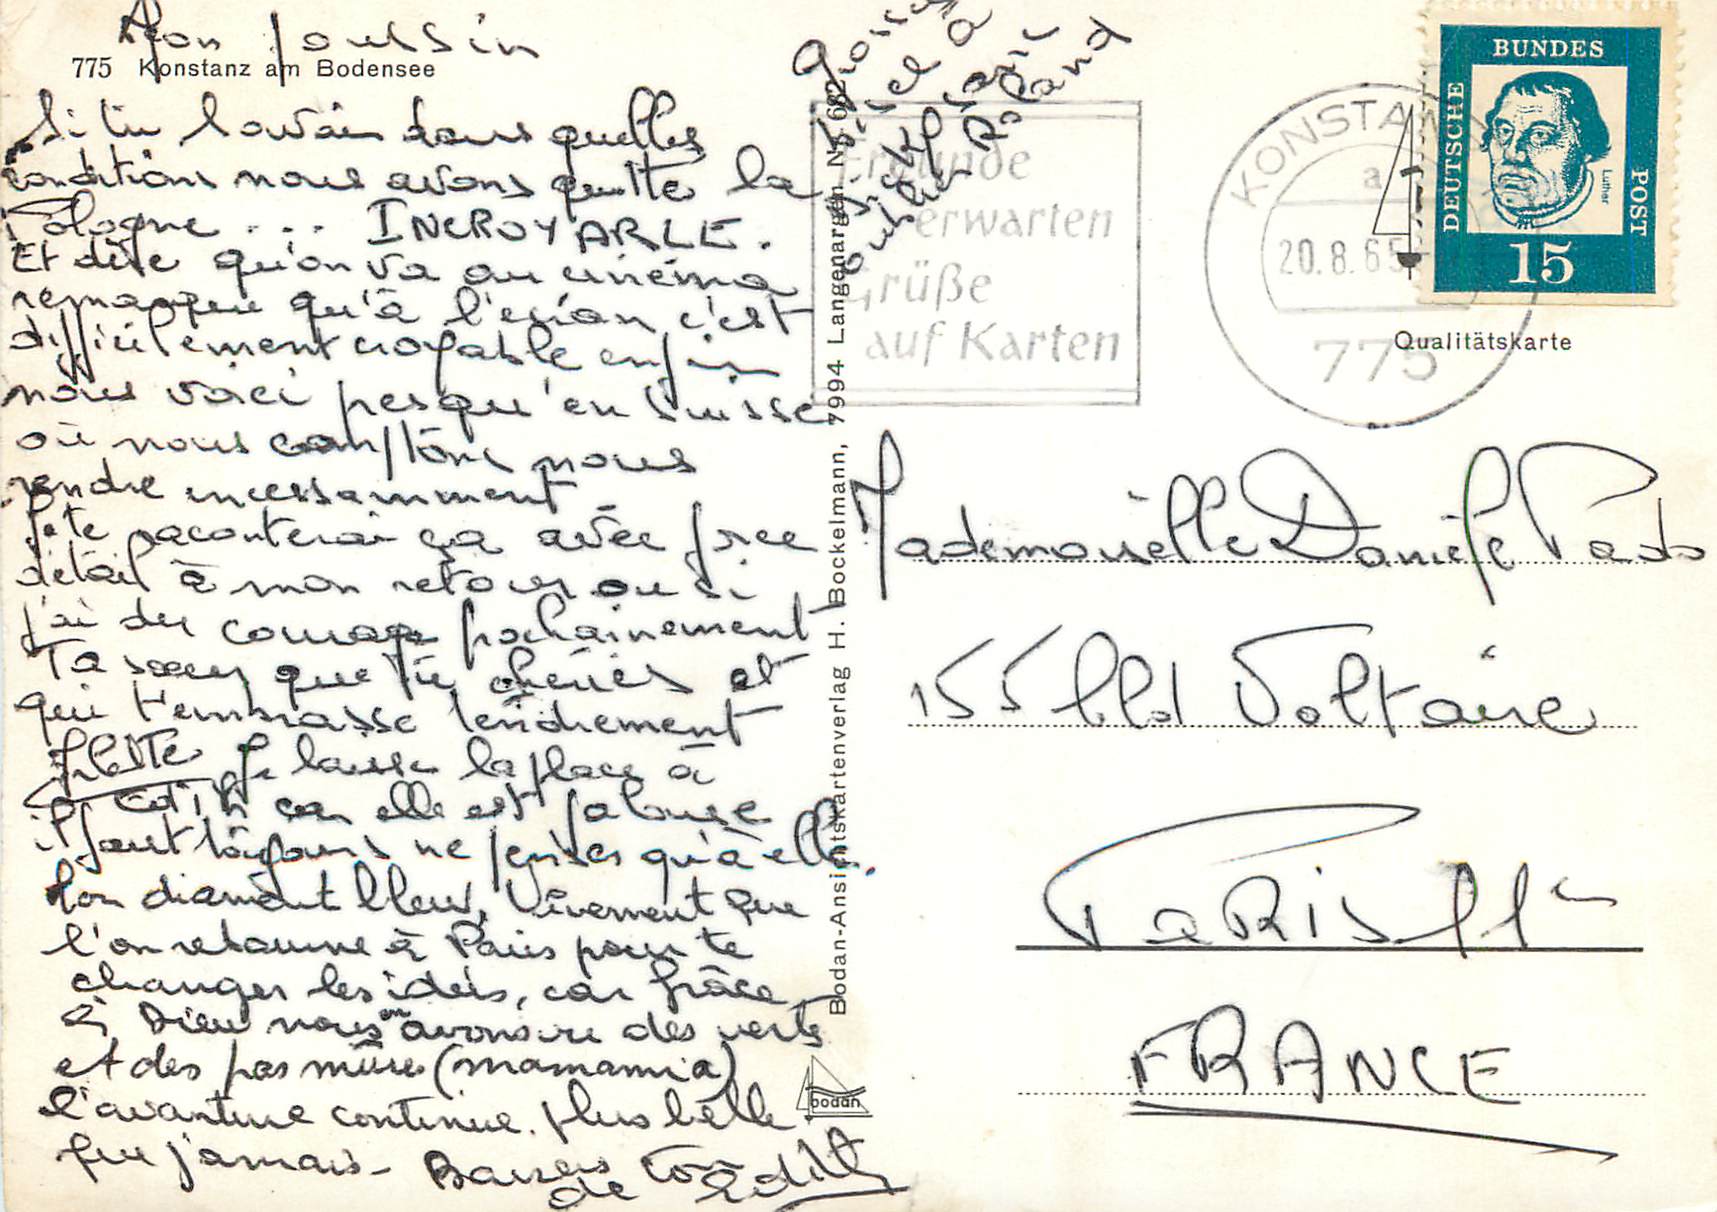 Mon poussin
775 Konstanz am Bodensee
Si tu savais dans quelles
conditions nous avons quitté la
Pologne ... INCROYABLE.
Et dire qu'on va au cinéma
remarque qu'à l'écran c'est
difficilement croyable enfin
nous voici presqu'en Suisse
où nous comptons nous
rendre incessamment
Je te raconterai ça avec force
détail à mon retour ou si
j'ai du courage prochainement
Ta soeur que tu chéries et
qui t'embrasse tendrement
Je laisse la place à
Edith car elle est jalouse
il faut toujours ne penser qu'à elle.
Mon diamant bleu, Vivement que
l'on retourne à Paris pour te
changer les idées, car grâce
à Dieu nous en avons vu des vertes
et des pas mûres (mamamia)
l'avanture continue. plus belle
que jamais - Baisers
de ton Edith
Grosses
bises
Roland
Bodan-Ansichtskartenverlag H. Bockelmann, 7994 Langenargen Nr. 682
bodan
Freunde
erwarten
Grüße
auf Karten
KONSTANZ
a
20.8.65
775
DEUTSCHE
BUNDES
POST
Luther
15
Qualitätskarte
Mademoiselle Danièle
155 bld Voltaire
PARIS 11e
FRANCE